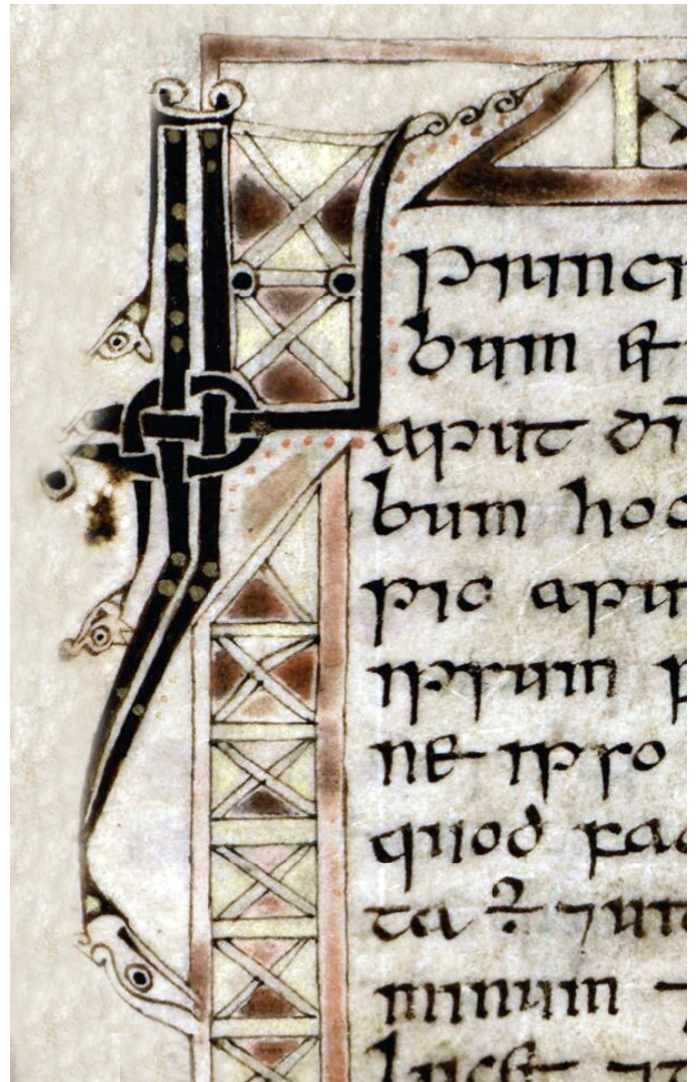 IN
princi
bum et
aput dī
bum hoc
pio apu
ipsum
ne ipso
quod fac
ta ÷ ⁊ uit
minum ⁊
lucet ⁊ t